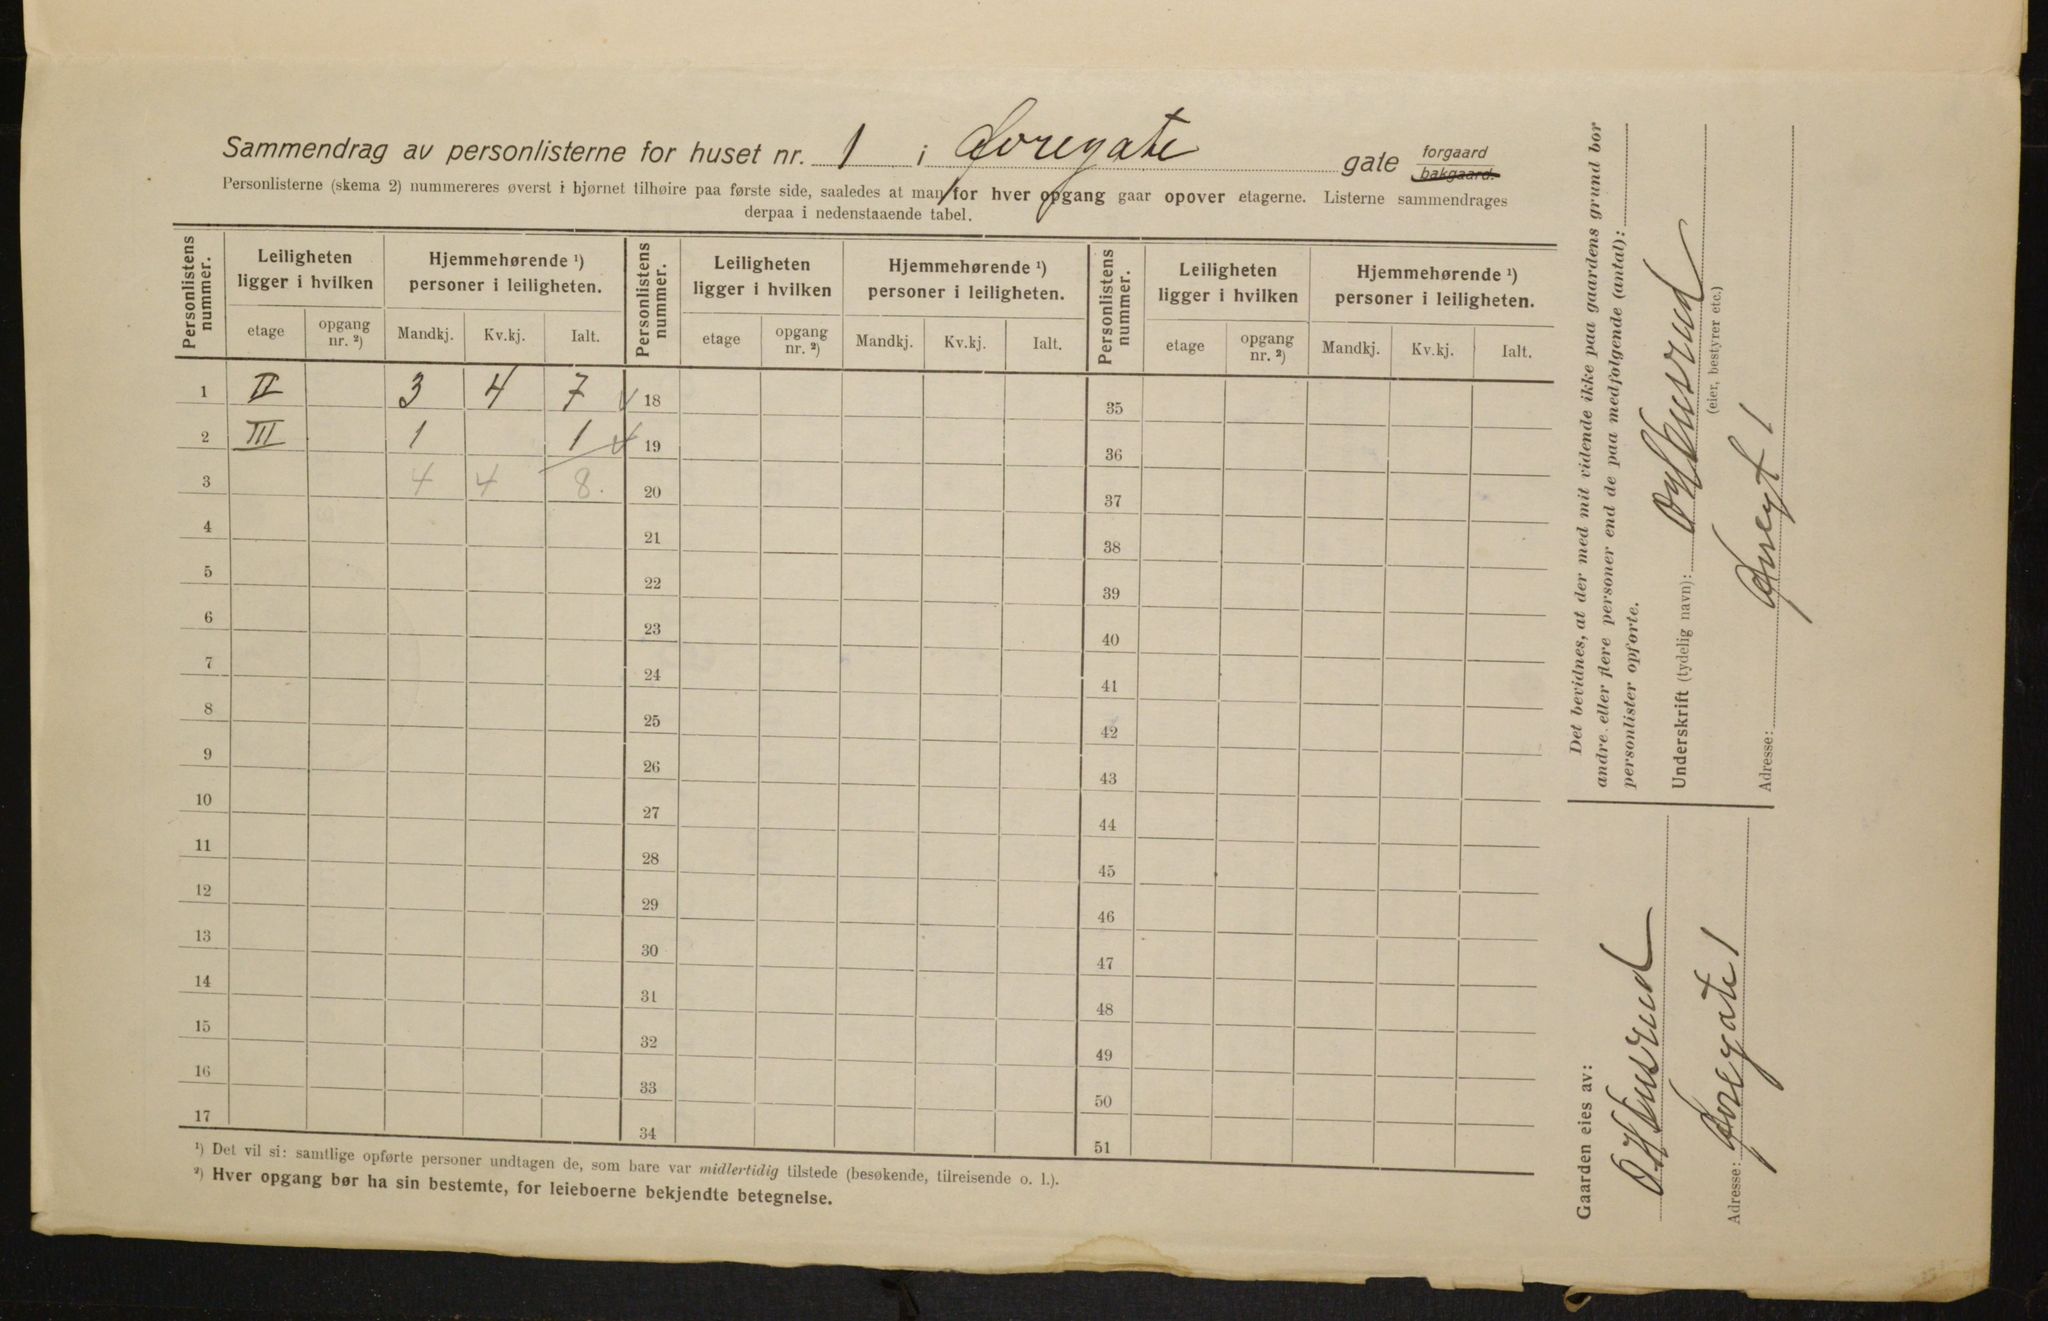 Sammendrag av personlisterne for huset nr. 1 i gate forgaard
bakgaard.
Personlisterne (skema 2) nummereres øverst i hjørnet tilhøire paa første side, saaledes at man for hver opgang gaar opover etagerne. Listerne sammendrages
derpaa i nedenstaaende tabel.
Personlistens nummer. Leiligheten ligger i hvilken Hjemmehørende ¹) personer i leiligheten. Personlistens nummer. Leiligheten ligger i hvilken Hjemmehørende ¹) personer i leiligheten. Personlistens nummer. Leiligheten ligger i hvilken Hjemmehørende ¹) personer i leiligheten.
etage opgang nr. ²) Mandkj. Kv.kj. Ialt. etage opgang nr. ²) Mandkj. Kv.kj. Ialt. etage opgang nr. ²) Mandkj. Kv.kj. Ialt.
1 II 3 4 7 18 35
2 III 1 1 19 36
3 4 4 8. 20 37
4 21 38
5 22 39
6 23 40
7 24 41
8 25 42
9 26 43
10 27 44
11 28 45
12 29 46
13 30 47
14 31 48
15 32 49
16 33 50
17 34 51
¹) Det vil si: samtlige opførte personer undtagen de, som bare var midlertidig tilstede (besøkende, tilreisende o. l.).
²) Hver opgang bør ha sin bestemte, for leieboerne bekjendte betegnelse.
Det bevidnes, at der med mit vidende ikke paa gaardens grund bor
andre eller flere personer end de paa medfølgende (antal):
personlister opførte.
Underskrift (tydelig navn):
(eier, bestyrer etc.)
Adresse: 1
Gaarden eies av:
Adresse: 1